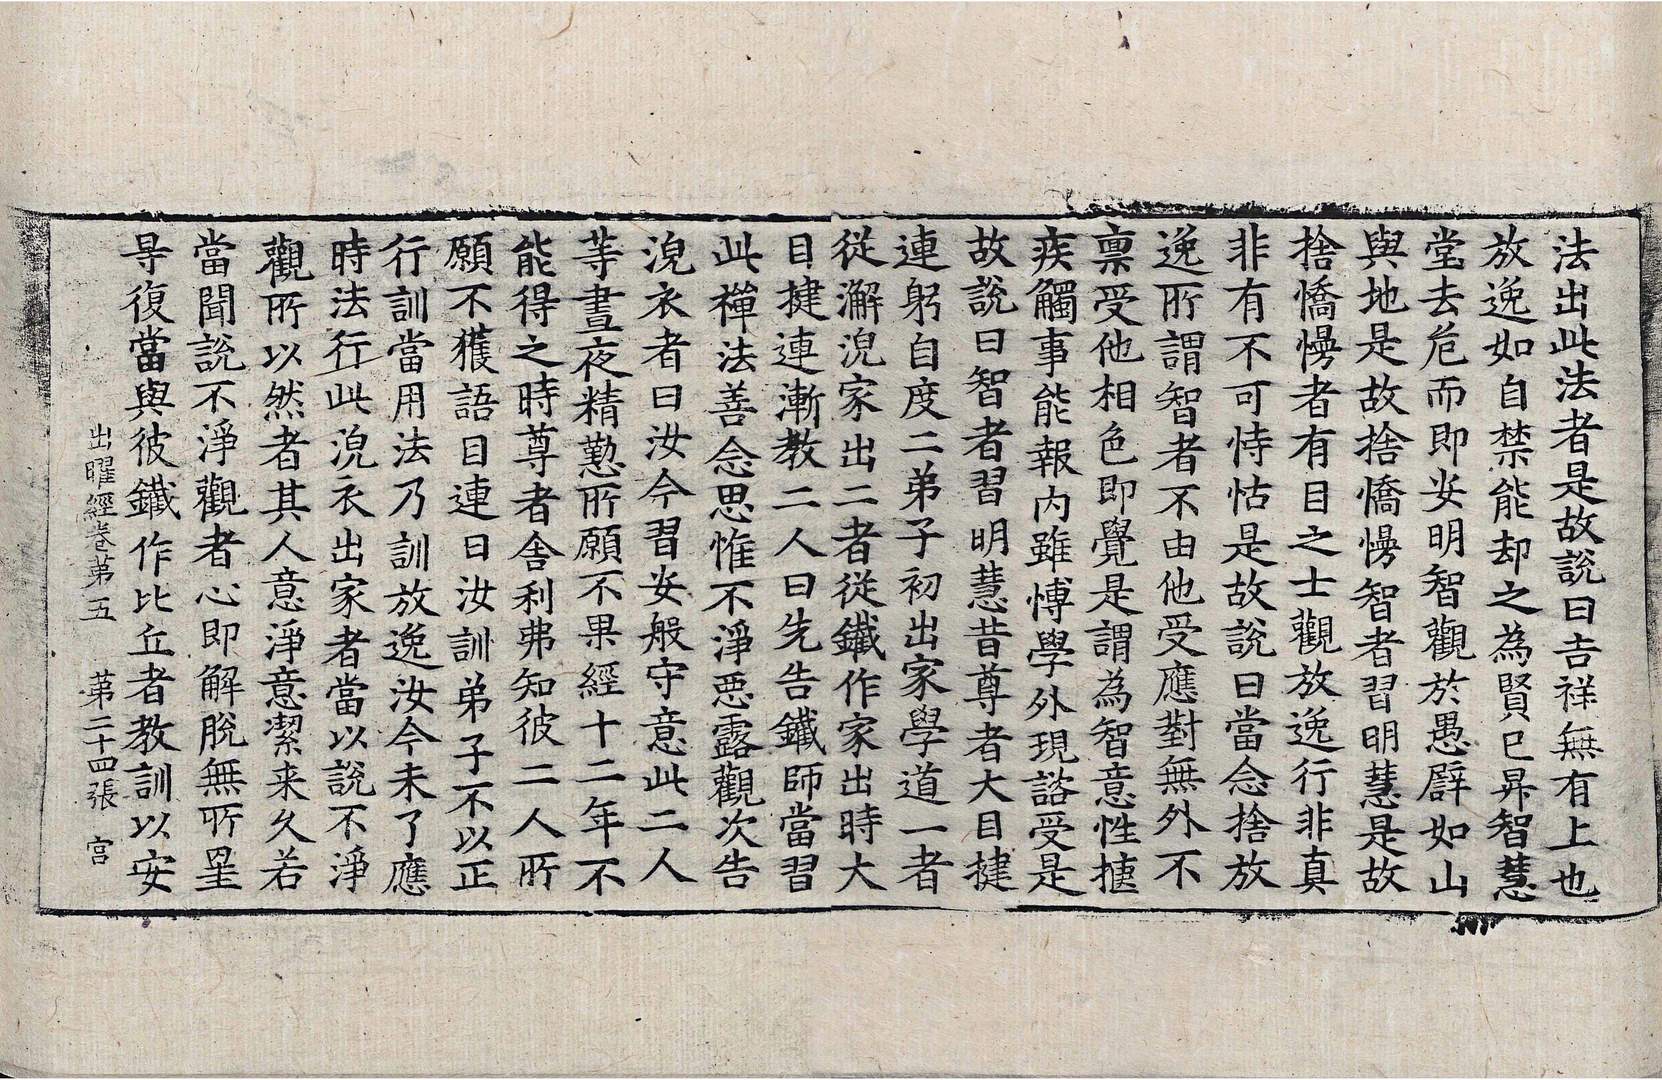 法出此法者是故説曰吉祥無有上也
放逸如自禁能却之為賢已昇智慧
堂去危而即安明智觀於愚譬如山
與地是故捨憍慢智者習明慧是故
捨憍慢者有目之士觀放逸行非真
非有不可恃怙是故説曰當念捨放
逸所謂智者不由他受應對無外不
稟受他相色即覺是謂為智意性揵
疾觸事能報内雖博學外現諮受是
故説曰智者習明慧昔尊者大目揵
連躬自度二弟子初出家學道一者
從澣浣家出二者從鐵作家出時大
目揵連漸教二人曰先告鐵師當習
此禪法善念思惟不淨惡露觀次告
浣衣者曰汝今習安般守意此二人
等晝夜精懃所願不果經十二年不
能得之時尊者舍利弗知彼二人所
願不獲語目連曰汝訓弟子不以正
行訓當用法乃訓放逸汝今未了應
時法行此浣衣出家者當以説不淨
觀所以然者其人意淨意潔来久若
當聞説不淨觀者心即解脱無所罣
㝵復當與彼鐵作比丘者教訓以安
出曜經卷第五　第二十四張　宫